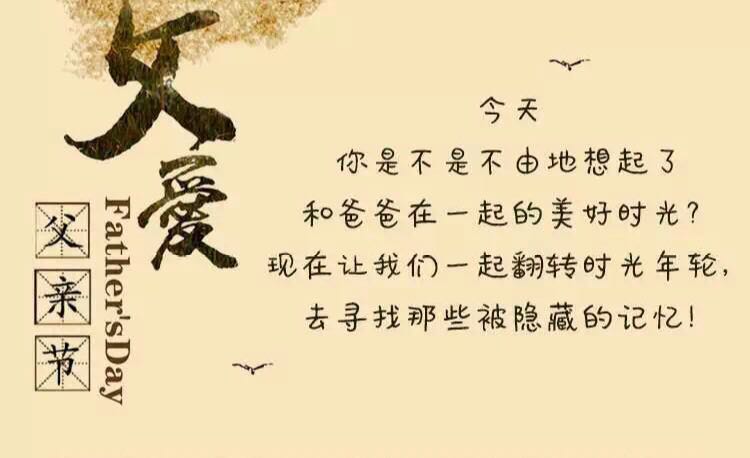 父愛
父亲节
Father'sDay
今天
你是不是不由地想起了
和爸爸在一起的美好时光?
现在让我们一起翻转时光年轮,
去寻找那些被隐藏的记忆!